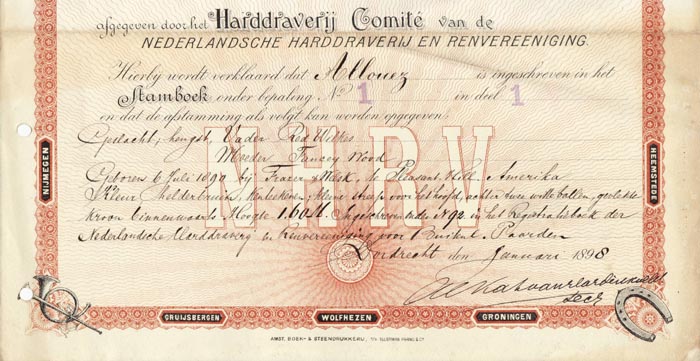 afgegeven door het Harddraverij Comité van de
NEDERLANDSCHE HARDDRAVERIJ EN RENVEREENIGING.
Hierbij wordt verklaard dat Allouez is ingeschreven in het
Stamboek onder bepaling No 1 in deel 1
en dat de afstamming als volgt kan worden opgegeven:
Geslacht, hengst, Vader Red Wilkes
Moeder Fancey Wood
Geboren 6 Juli 1890 bij Frazer & te Pleasant Hill, Amerika
Kleur Helderbruin, kleine streep voor het hoofd, achter twee witte ballen, gevlekte
kroon binnenwaarts Hoogte 1.60 M. Ingeschreven No 92 in het Registratieboek der
Nederlandsche Harddraverij en Renvereeniging voor Buitenl. Paarden
Dordrecht den Januari 1898
Secr
NHRV
NIJMEGEN
HEEMSTEDE
CRUIJSBERGEN
WOLFHEZEN
GRONINGEN
AMST. BOEK- & STEENDRUKKERIJ, v/h ELLERMAN, HARMS & Co